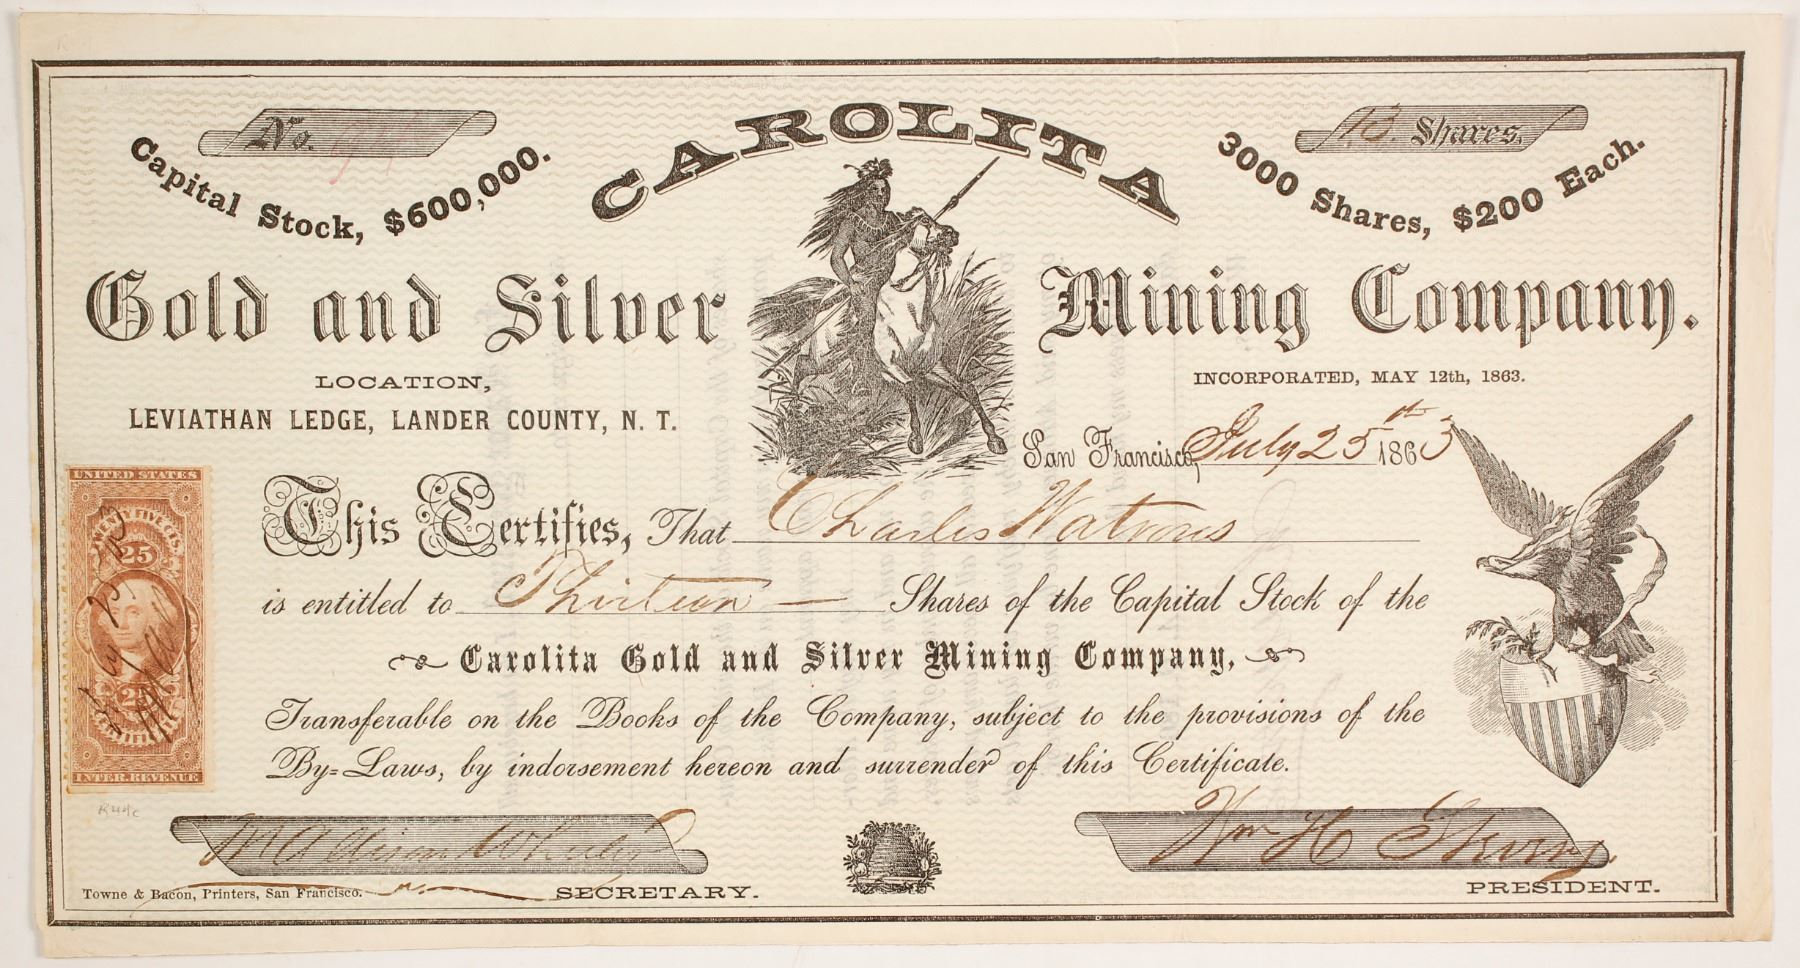 No.
13 Shares.
CAROLITA
Capital Stock, $600,000.
3000 Shares, $200 Each.
Gold and Silver Mining Company.
LOCATION,
LEVIATHAN LEDGE, LANDER COUNTY, N. T.
INCORPORATED, MAY 12th, 1863.
San Francisco, July 25th 1863
This Certifies, That Charles Watrous
is entitled to Thirteen Shares of the Capital Stock of the
Carolita Gold and Silver Mining Company,
Transferable on the Books of the Company, subject to the provisions of the
By=Laws, by indorsement hereon and surrender of this Certificate.
UNITED STATES
TWENTY FIVE CTS.
25
25
CERTIFICATE
INTER. REVENUE
Wm H
SECRETARY.
PRESIDENT.
Towne & Bacon, Printers, San Francisco.